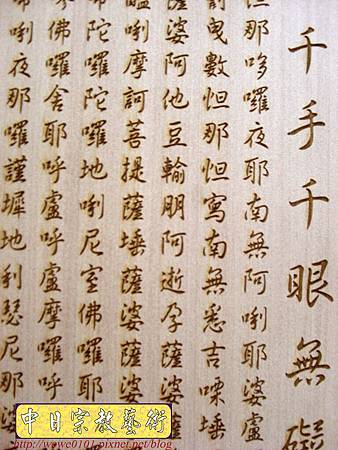 千手千眼無礙
怛那哆囉夜耶南無阿唎耶婆盧
曳數怛那怛寫南無悉吉㗚埵
薩婆阿他豆輸朋阿逝孕薩婆
醯唎摩訶菩提薩埵薩婆薩婆
陀囉陀囉地唎尼室佛囉耶
佛囉舍耶呼盧呼盧摩囉呼
唎夜那囉謹墀地利瑟尼那婆
中日宗教藝術
http://wowe0101.pixnet.net/blog